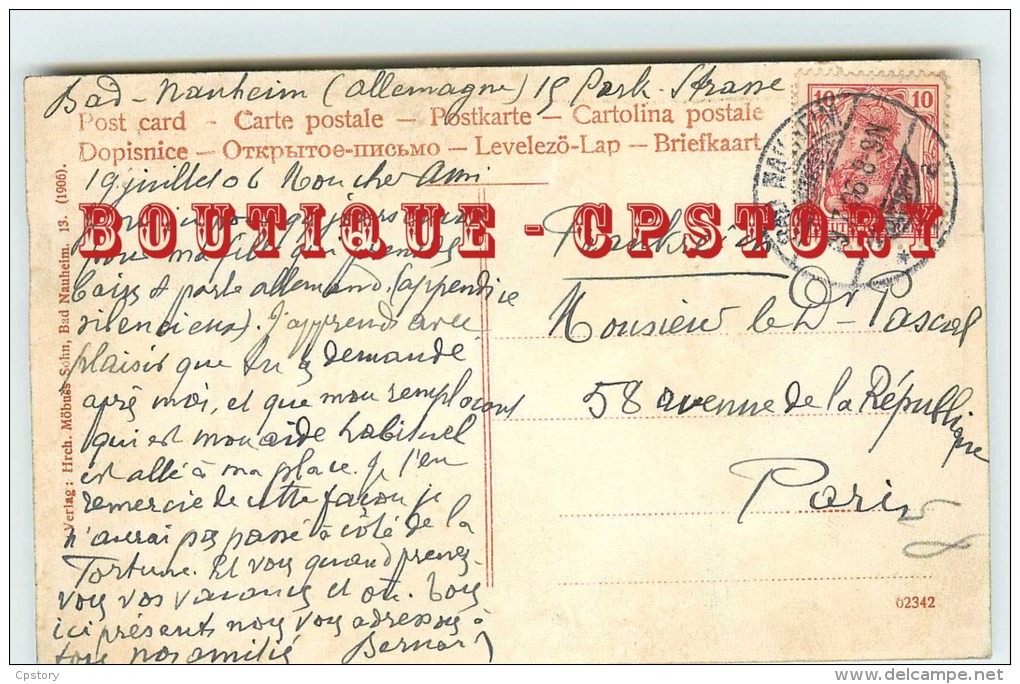 Bad-Nauheim (Allemagne) 19 Park-Strasse
Post card - Carte postale - Postkarte - Cartolina postale
Dopisnice - Открытое-письмо - Levelezö-Lap - Briefkaart
19 juillet 06 Mon cher Ami
BOUTIQUE - CPSTORY
bains & parle allemand. (appendice
silencieux). J'apprends avec
plaisir que tu as demandé
après moi, et que mon remplaçant
qui est mon aide habituel
est allé à ma place. Je t'en
remercie de cette façon je
n'aurai pas passé à côté de la
fortune. Et vous quand prenez-
vous vos vacances et où. Tous
ici présents nous vous adressons à
tous nos amitiés Bernard
Monsieur le Dr Pascal
58 avenue de la République
Paris
10 10
62342
Verlag: Hrch. Möbuss Sohn, Bad Nauheim. 13. (1906).
Cpstory
delcampe.net